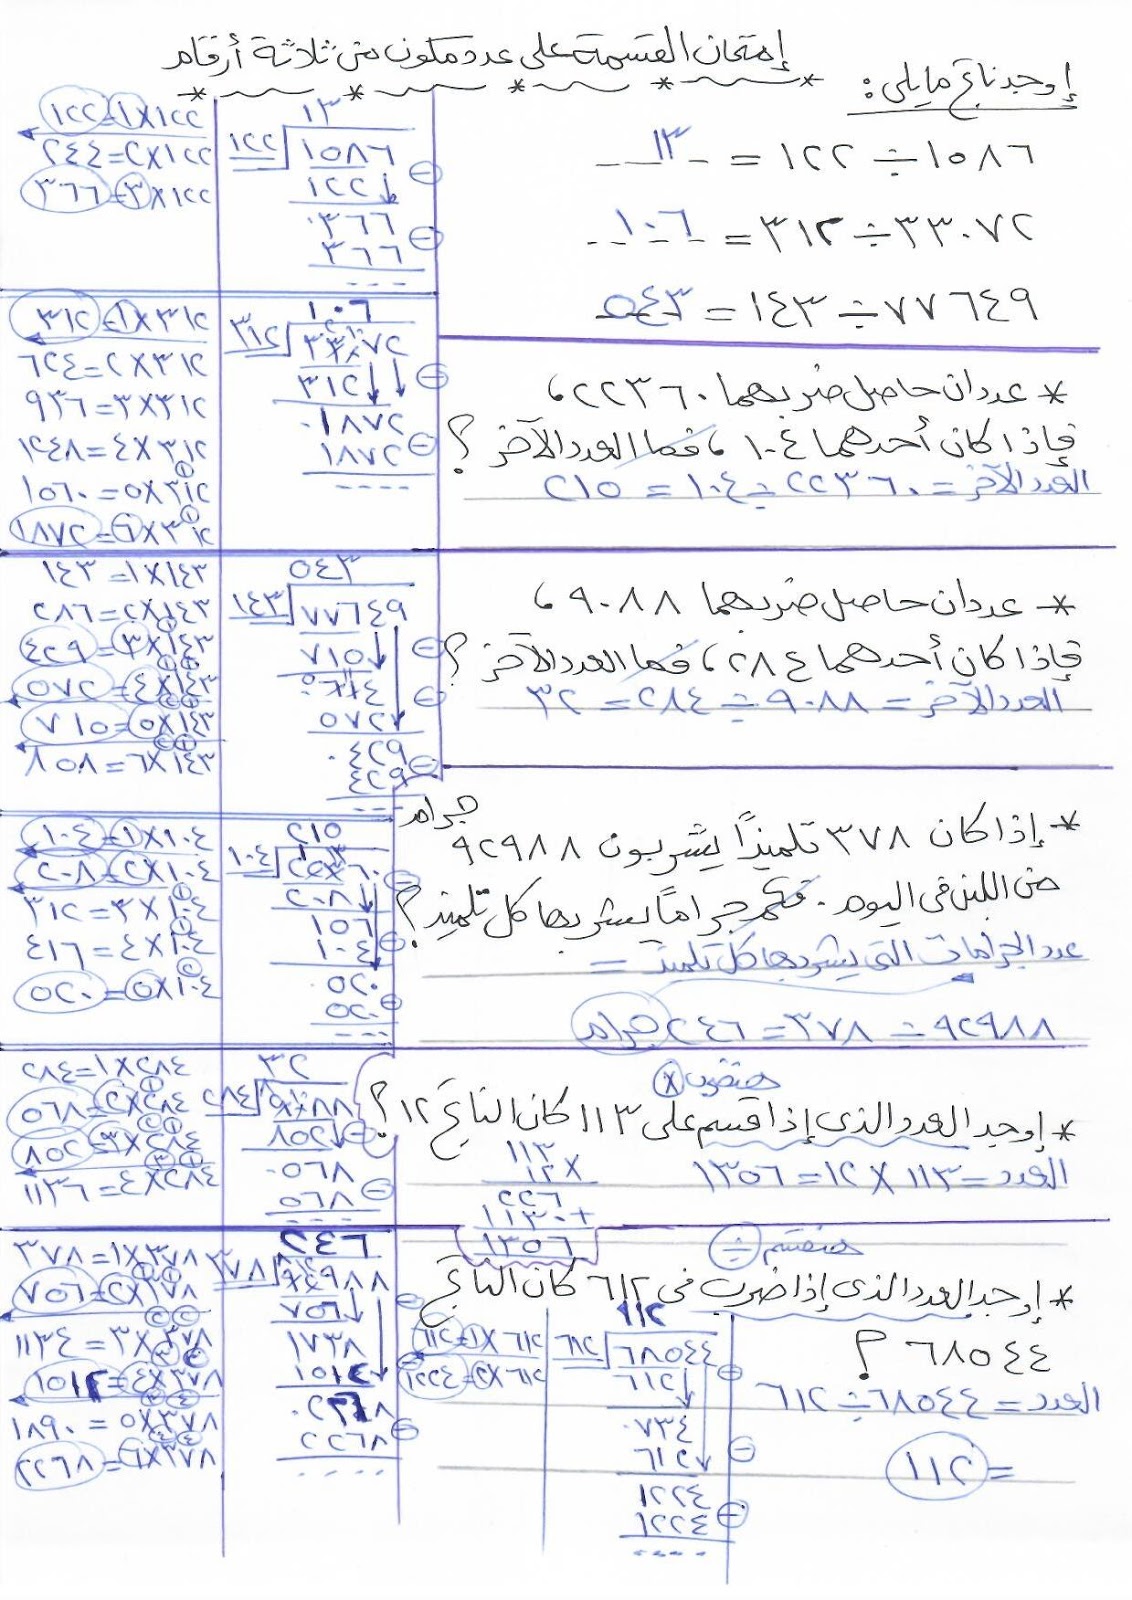 إمتحان القسمة على عدد مكون من ثلاثة أرقام
إوجد ناتج مايلى :
١٥٨٦ ÷ ١٢٢ = ١٣
٣٣٠٧٢ ÷ ٣١٢ = ١٠٦
٧٧٦٤٩ ÷ ١٤٣ = ٥٤٣
* عددان حاصل ضربهما ٢٢٣٦٠ ،
فإذا كان أحدهما ١٠٤ ، فما العدد الآخر ؟
العدد الآخر = ٢٢٣٦٠ ÷ ١٠٤ = ٢١٥
* عددان حاصل ضربهما ٩٠٨٨ ،
فإذا كان أحدهما ٢٨٤ ، فما العدد الآخر ؟
العدد الآخر = ٩٠٨٨ ÷ ٢٨٤ = ٣٢
* إذا كان ٣٧٨ تلميذاً يشربون ٩٢٩٨٨ جرام
من اللبن فى اليوم . فكم جراماً يشربها كل تلميذ ؟
عدد الجرامات التى يشربها كل تلميذ =
٩٢٩٨٨ ÷ ٣٧٨ = ٢٤٦ جرام
هنضرب ×
* إوجد العدد الذى إذا قسم على ١١٣ كان الناتج ١٢ ؟
العدد = ١١٣ × ١٢ = ١٣٥٦
١١٣
١٢ ×
٢٢٦
١١٣٠ +
١٣٥٦
هنقسم ÷
* إوجد العدد الذى إذا ضرب فى ٦١٢ كان الناتج
٦٨٥٤٤ ؟
العدد = ٦٨٥٤٤ ÷ ٦١٢
= ١١٢
١١٢
٦١٢ ٦٨٥٤٤
٦١٢
٠٧٣٤
٦١٢
١٢٢٤
١٢٢٤
٦١٢ × ١ = ٦١٢
٦١٢ × ٢ = ١٢٢٤
١٣
١٢٢ ١٥٨٦
١٢٢
٠٣٦٦
٣٦٦
١٢٢ × ١ = ١٢٢
١٢٢ × ٢ = ٢٤٤
١٢٢ × ٣ = ٣٦٦
١٠٦
٣١٢ ٣٣٠٧٢
٣١٢
٠١٨٧٢
١٨٧٢
٣١٢ × ١ = ٣١٢
٣١٢ × ٢ = ٦٢٤
٣١٢ × ٣ = ٩٣٦
٣١٢ × ٤ = ١٢٤٨
٣١٢ × ٥ = ١٥٦٠
٣١٢ × ٦ = ١٨٧٢
٥٤٣
١٤٣ ٧٧٦٤٩
٧١٥
٥٧٢
٠٤٢٩
٤٢٩
١٤٣ × ١ = ١٤٣
١٤٣ × ٢ = ٢٨٦
١٤٣ × ٣ = ٤٢٩
١٤٣ × ٤ = ٥٧٢
١٤٣ × ٥ = ٧١٥
١٤٣ × ٦ = ٨٥٨
٢١٥
١٠٤ ٢٢٣٦٠
٢٠٨
١٥٦
١٠٤
٠٥٢٠
٥٢٠
١٠٤ × ١ = ١٠٤
١٠٤ × ٢ = ٢٠٨
١٠٤ × ٣ = ٣١٢
١٠٤ × ٤ = ٤١٦
١٠٤ × ٥ = ٥٢٠
٣٢
٢٨٤ ٩٠٨٨
٨٥٢
٠٥٦٨
٥٦٨
٢٨٤ × ١ = ٢٨٤
٢٨٤ × ٢ = ٥٦٨
٢٨٤ × ٣ = ٨٥٢
٢٨٤ × ٤ = ١١٣٦
٢٤٦
٣٧٨ ٩٢٩٨٨
٧٥٦
١٧٣٨
١٥١٢
٠٢٢٦٨
٢٢٦٨
٣٧٨ × ١ = ٣٧٨
٣٧٨ × ٢ = ٧٥٦
٣٧٨ × ٣ = ١١٣٤
٣٧٨ × ٤ = ١٥١٢
٣٧٨ × ٥ = ١٨٩٠
٣٧٨ × ٦ = ٢٢٦٨